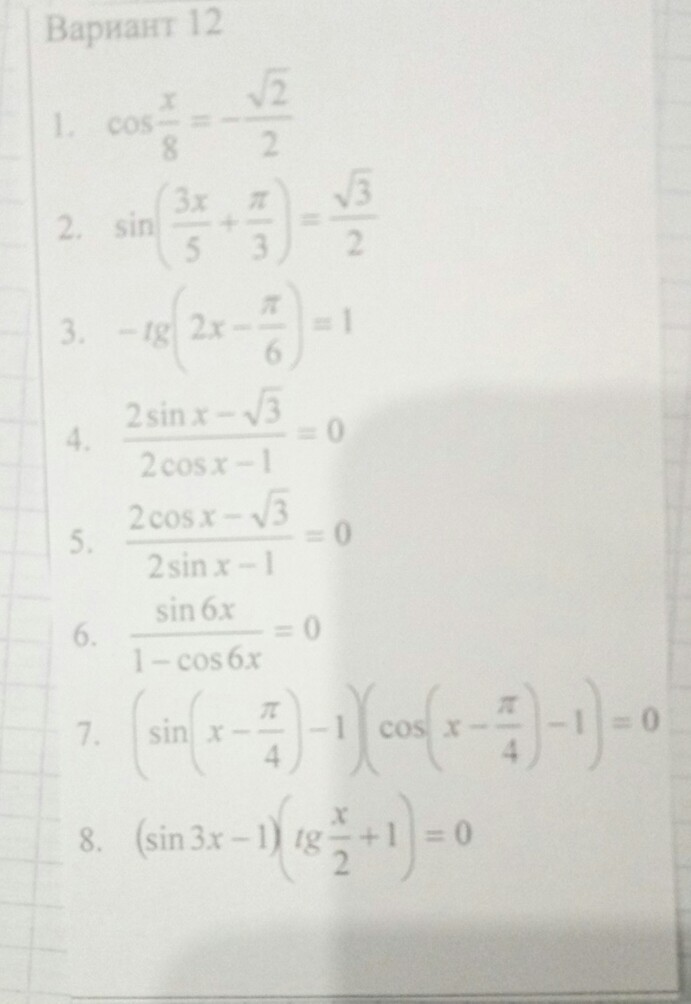 Вариант 12
1. cos x/8 = -√2/2
2. sin(3x/5 + π/3) = √3/2
3. -tg(2x - π/6) = 1
4. (2 sin x - √3)/(2 cos x - 1) = 0
5. (2 cos x - √3)/(2 sin x - 1) = 0
6. sin 6x/(1 - cos 6x) = 0
7. (sin(x - π/4) - 1)(cos(x - π/4) - 1) = 0
8. (sin 3x - 1)(tg x/2 + 1) = 0